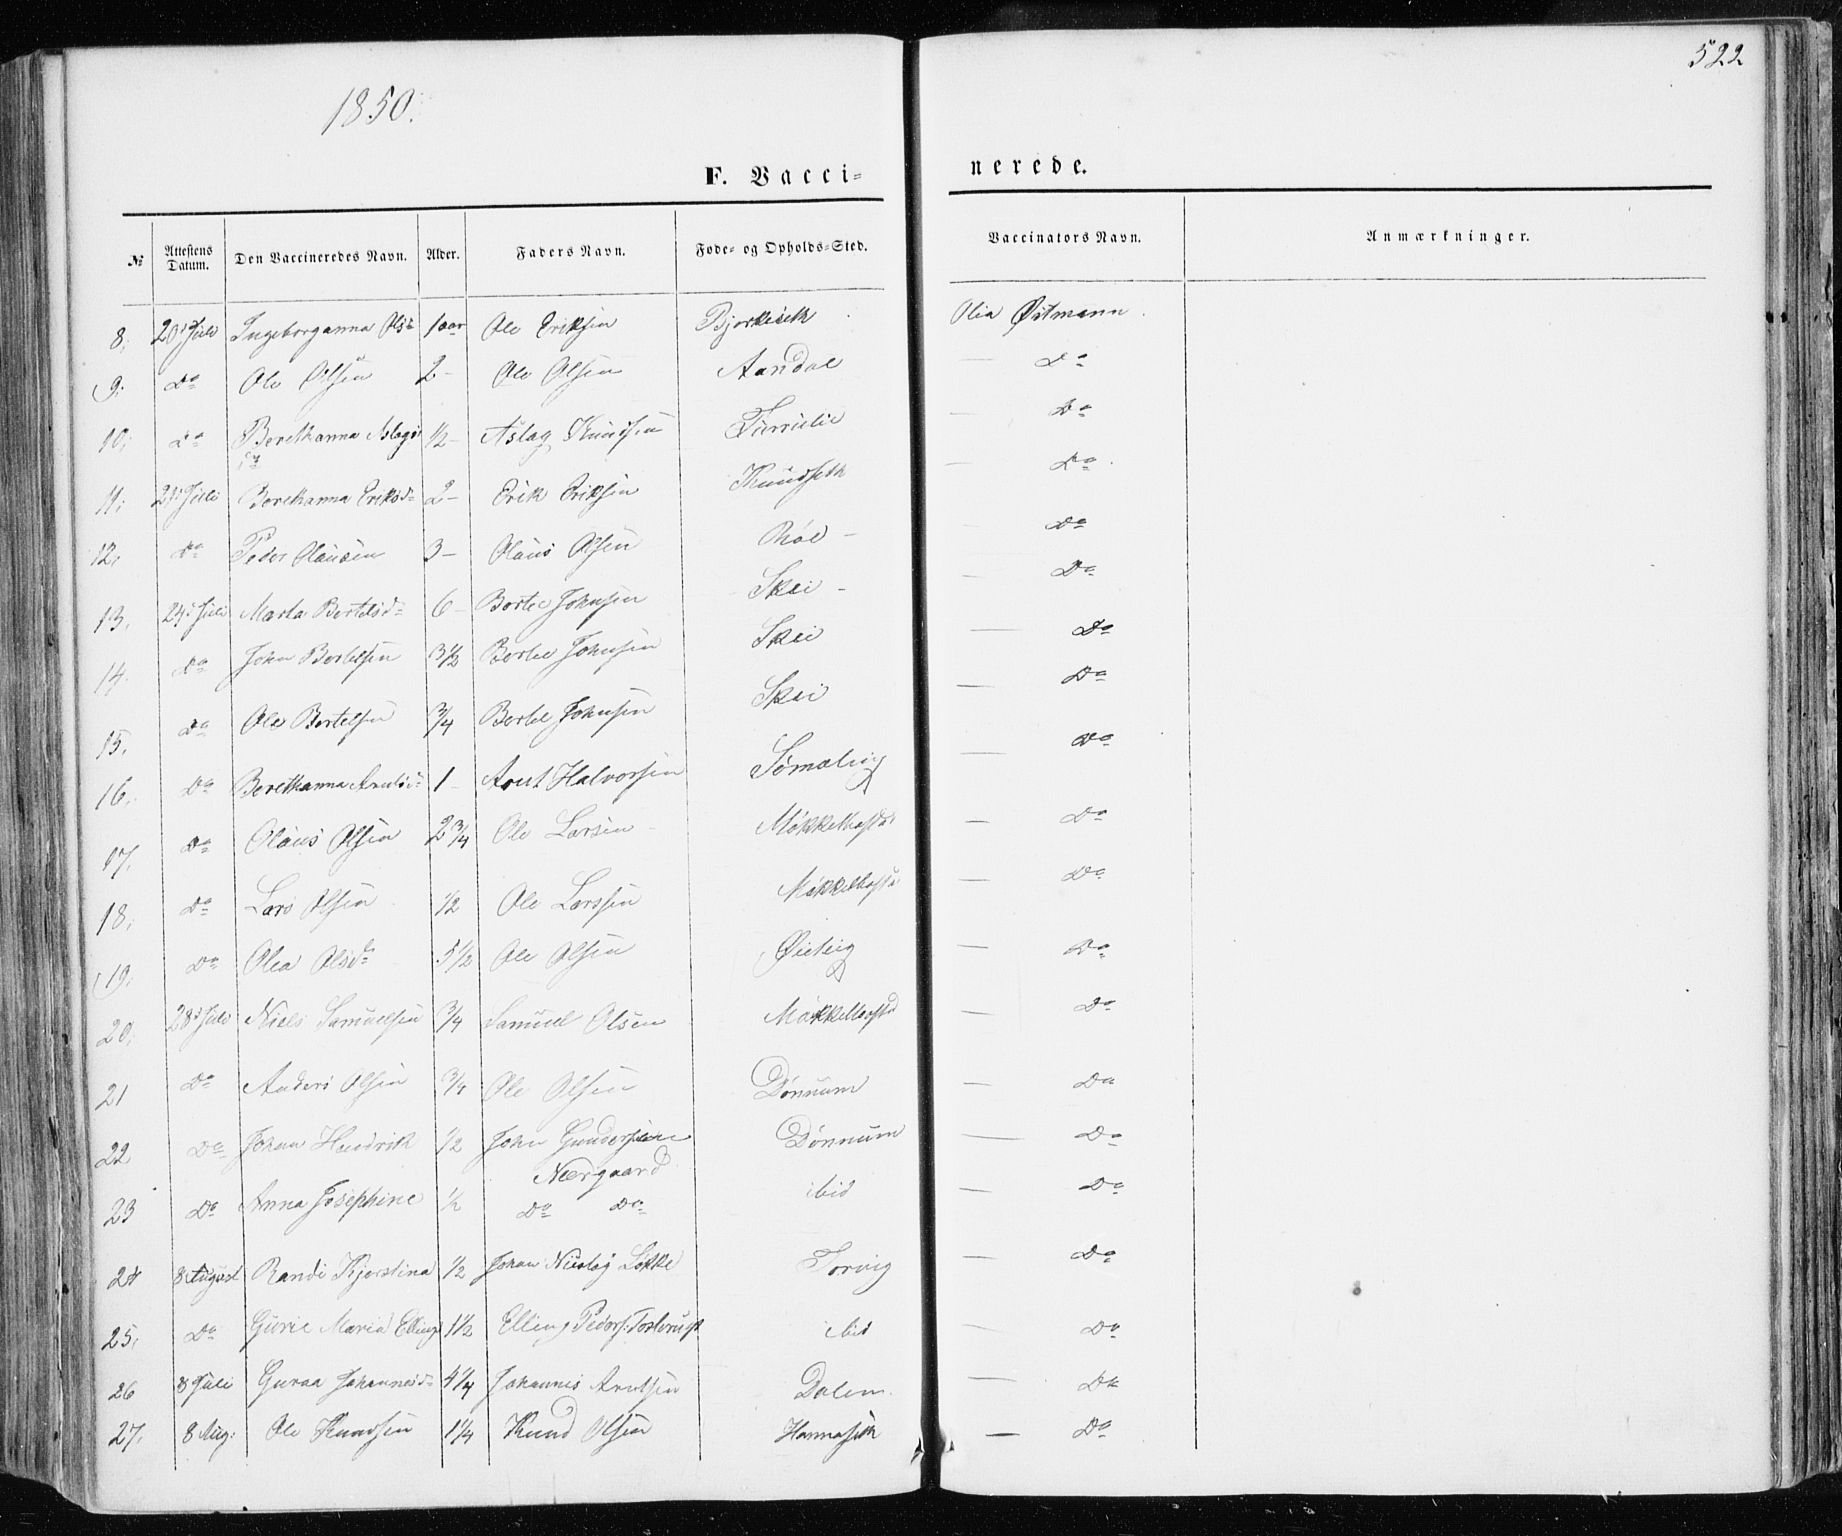 522
1850.
F. Vacci= nerede.
№ Attestens Datum. Den Vaccineredes Navn. Alder. Faders Navn. Føde- og Opholds-Sted. Vaccinators Navn. Anmærkninger.
8. 20' Juli Ingeborganna Olsd 1 aar Ole Eriksen Bjerkeseth Olia Østmann.
9. Do Ole Olsen 2 - Ole Olsen Aandal — Do
10. Do Berethanna Aslags 1/2 - Aslag Knudsen — Do
11. 21' Juli Berethanna Eriksd 2 - Erik Eriksen Knudseth — Do
12. Do Peder Olausen 3 - Olaus Olsen Roe - — Do
13. 24' Juli Marta Bertelsd 6 - Bertel Johnsen Skei - — Do
14. Do John Bertelsen 3 1/2 Bertel Johnsen Skei — Do
15. Do Ole Bertelsen 3/4 Bertel Johnsen Skei — Do
16. Do Berethanna Arntsd 1 - Arnt Halvorsen — Do
17. Do Olaus Olsen 2 3/4 Ole Larsen Møkkelhastu — Do
18. Do Lars Olsen 1/2 Ole Larssen Møkkelhastu — Do
19. Do Olea Olsd 5 1/2 Ole Olsen Øivig — Do
20. 28' Juli Niels Samuelsen 3/4 Samuel Olsen Møkkelhastu — Do
21 Do Anders Olsen 3/4 Ole Olsen Dønnum — Do
22 Do Johan Hendrik 1/2 John Gundersen Dønnum — Do
Nergaard
23 Do Anna Josephine 1/2 Do Do ibid — Do
24 8 August Randi Kjerstina 1/2 Johan Nicolaj Løkke Torvig — Do
25. Do Gurie Maria Ellings 1 1/2 Elling Peders: ibid — Do
26 8 Juli Guraa Johannesd 4 1/4 Johannes Arntsen Dalem. — Do
27. 8 Aug: Ole Knudsen 1 1/4 Knud Olsen Hannaseth — Do